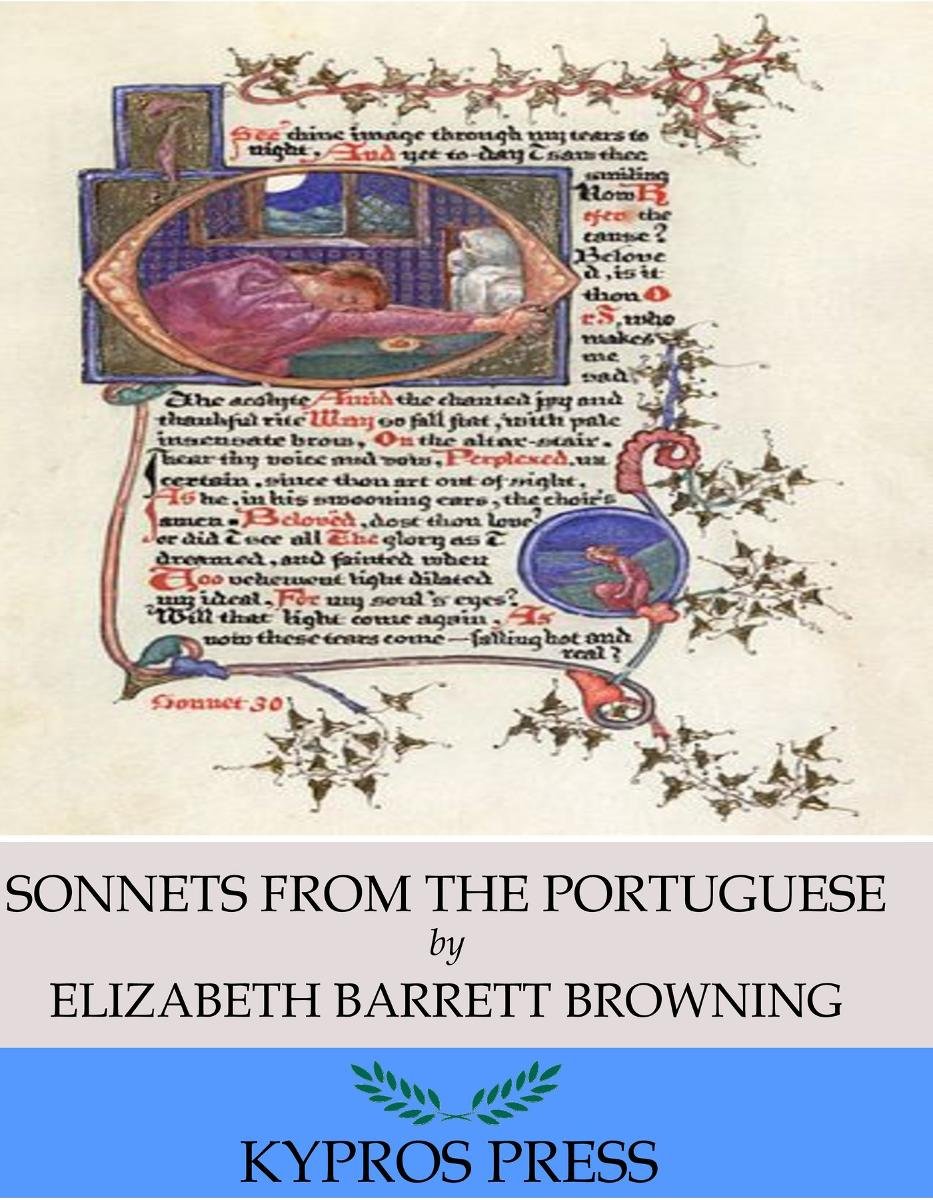 See thine image through my tears to
night, And yet to-day I saw thee
smiling
How R
efer the
cause?
Belove
d, is it
thou O
r I, who
makes
me
sad
The acolyte Amid the chanted joy and
thankful rite May so fall flat, with pale
insensate brow, On the altar-stair.
hear thy voice and vow, Perplexed, un
certain, since thou art out of sight,
As he, in his swooning ears, the choir's
amen. Belovëd, dost thou love?
or did I see all The glory as I
dreamed, and fainted when
Too vehement light dilated
my ideal, For my soul's eyes?
Will that light come again, As
now these tears come—falling hot and
real?
Sonnet 30
SONNETS FROM THE PORTUGUESE
by
ELIZABETH BARRETT BROWNING
KYPROS PRESS